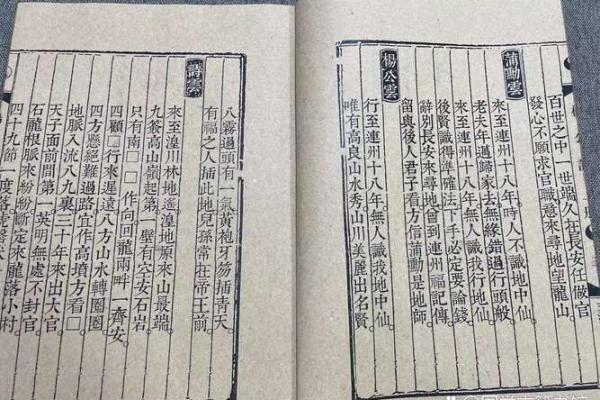 百世之中一世端久在長安任做官
發心不願求官職意來尋地望龍山
蒲勳雲
來至連州十八年時人不識地中仙。
老夫年邁歸家去無緣錯過頭般。
來至連州十八年無人識我行地仙。
後賢識得準確法下手必定要論錢。
辭別長安來尋地曾到連州福記傳。
留與後人君子看方信蒲勳是地師。
楊公雲
行至連州十八年無人識我地中仙。
唯有高良山水秀山川美麗出名賢。
八霧過頭有一氣黃袍牙笏插青天。
有福之人插此地兒孫常在帝王前。
詩雲
來至湟川林地遙湟地原來山最端。
九嶺高山嶺起第一壁有空安石岩。
只有南□□作向回龍兩畔一齊安。
四顧□行來遲遠八方山水轉圈圈。
四方懸絕難過路宜作高墳方看□。
地脈入流八九裏三十年來出大官。
天子面前間第一英明無處不封官。
石龍根脈來粉粉斷定來龍落小村。
四十九節一度落